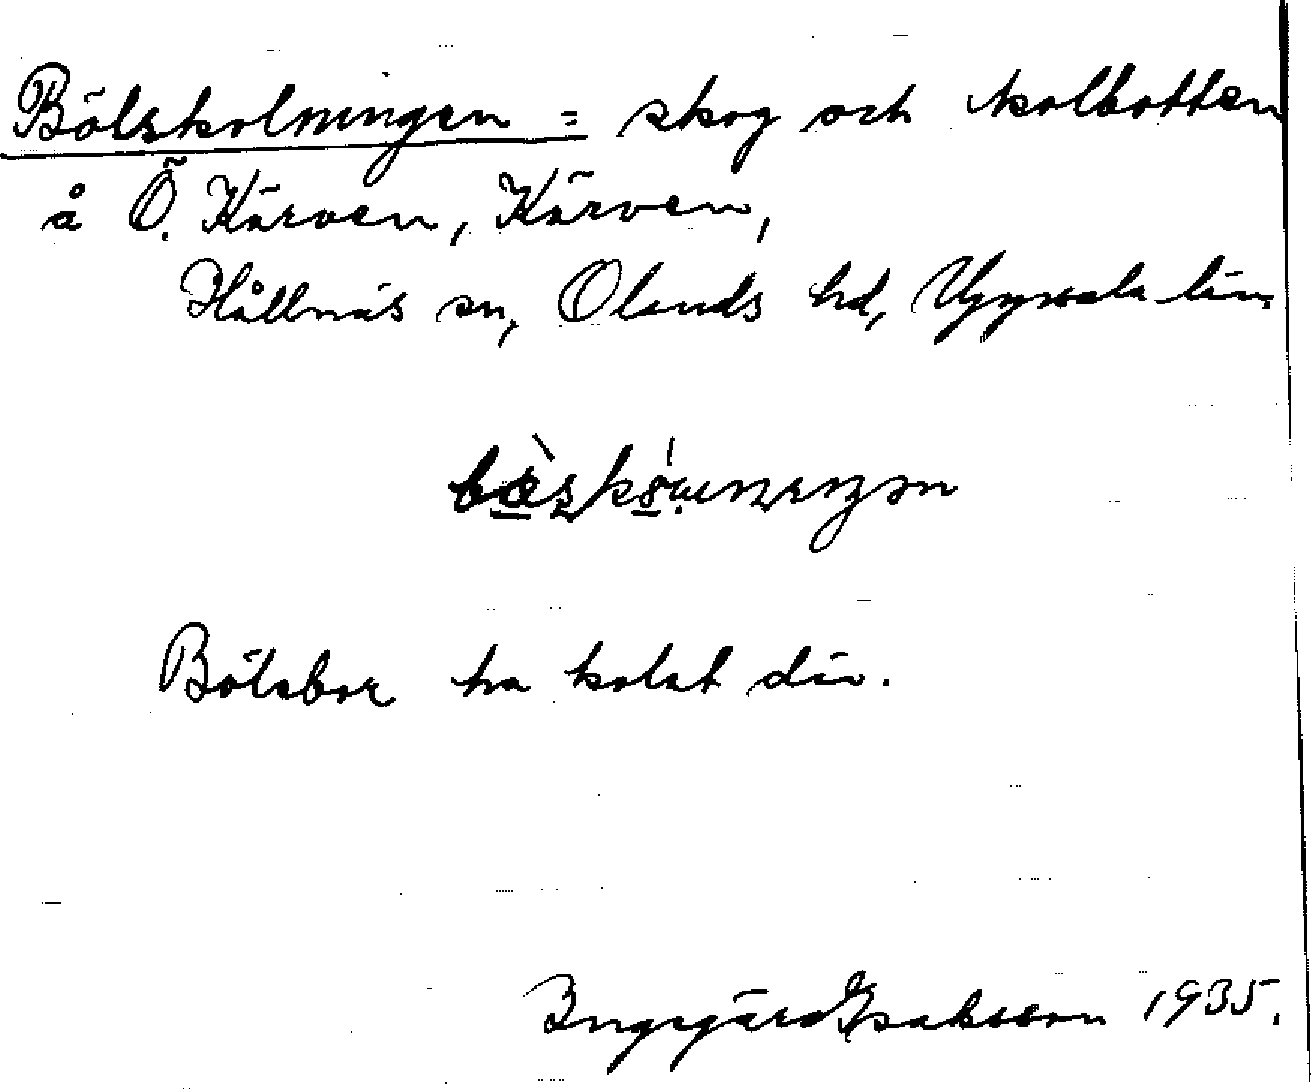 Bölskolningen = skog och kolbotten
å Ö. Kärven, Kärven,
Hållnäs sn, Olands hd, Uppsala län.
Bölsbor ha kolat där.
Ingegärd Isaksson 1935.